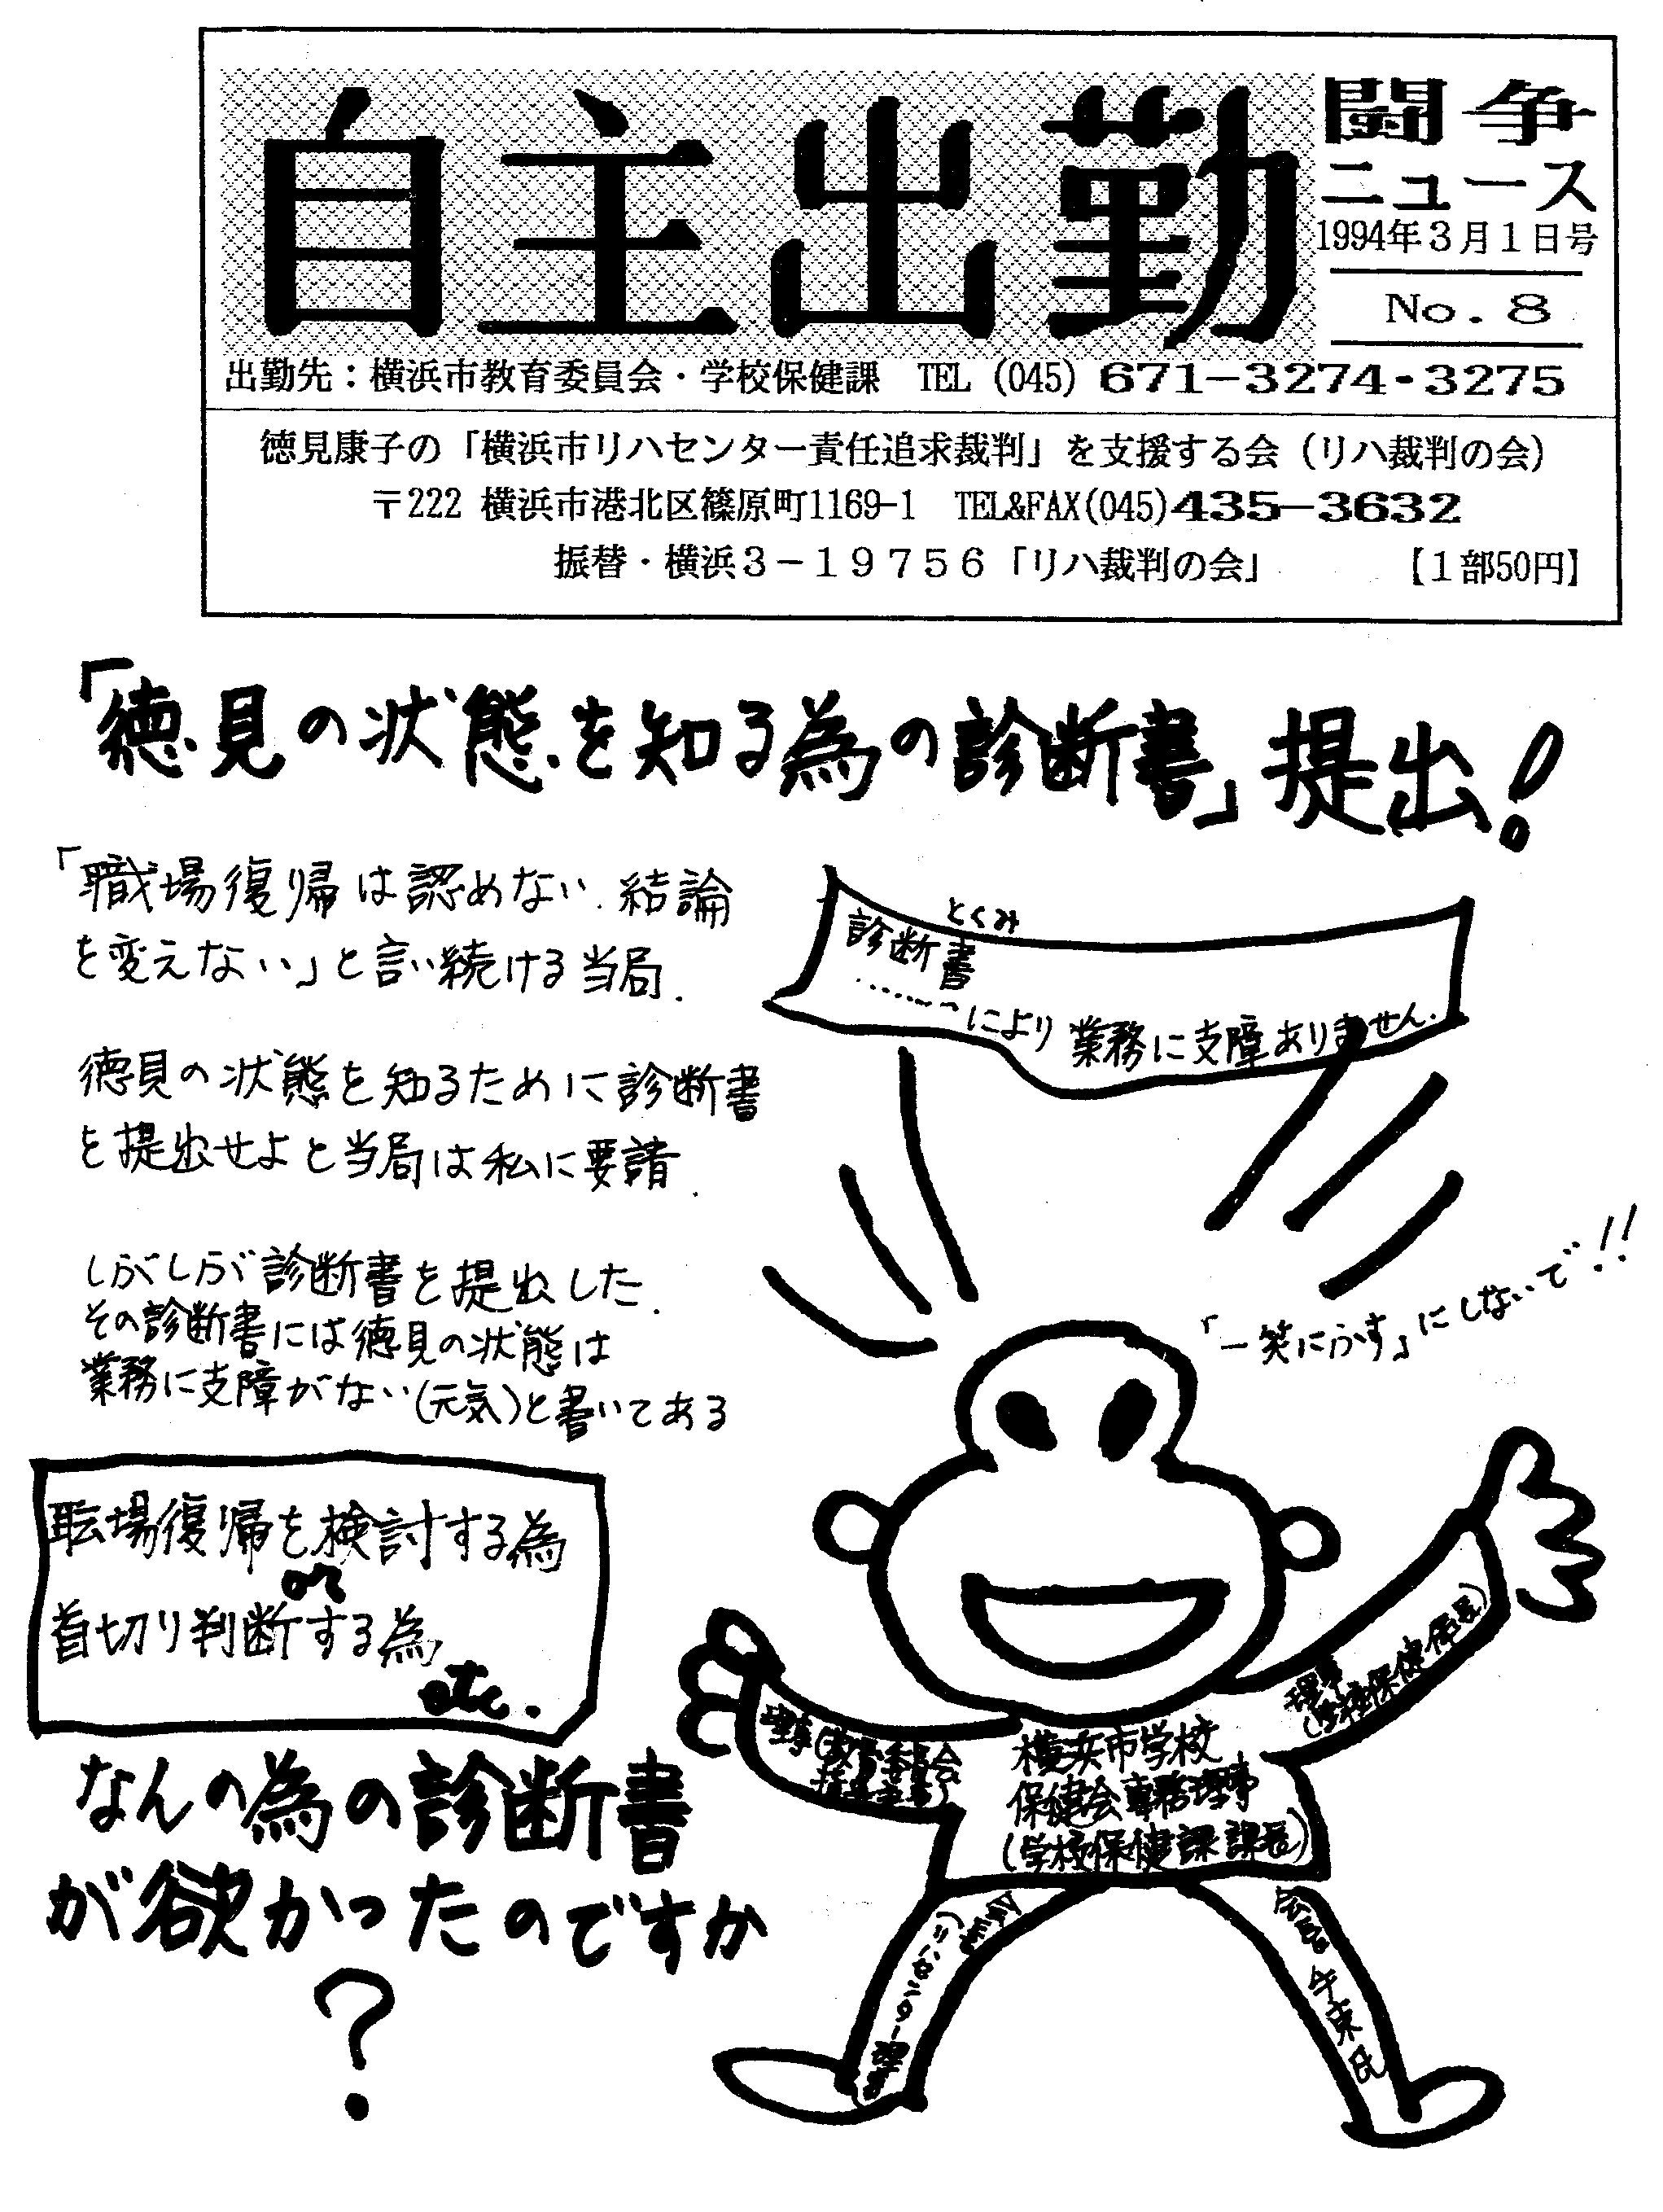 自主出勤
闘争
ニュース
1994年3月1日号
No. 8
出勤先：横浜市教育委員会・学校保健課　TEL (045) 671-3274・3275
徳見康子の「横浜市リハセンター責任追求裁判」を支援する会（リハ裁判の会）
〒222 横浜市港北区篠原町1169-1　TEL&FAX(045)435-3632
振替・横浜3-19756「リハ裁判の会」　【1部50円】
「徳見の状態を知る為の診断書」提出!
「職場復帰は認めない.結論
を変えない」と言い続ける当局.
徳見の状態を知るために診断書
を提出せよと当局は私に要請.
しぶしぶ診断書を提出した.
その診断書には徳見の状態は
業務に支障がない(元気)と書いてある
職場復帰を検討する為
or
首切り判断する為
etc.
なんの為の診断書
が欲かったのですか
?
とくみ
診断書
……により業務に支障ありません.
「一笑にふす」にしないで!!
理事(教育委員会
理事
(学校保健係長)
横浜市学校
保健会専務理事
(学校保健課課長)